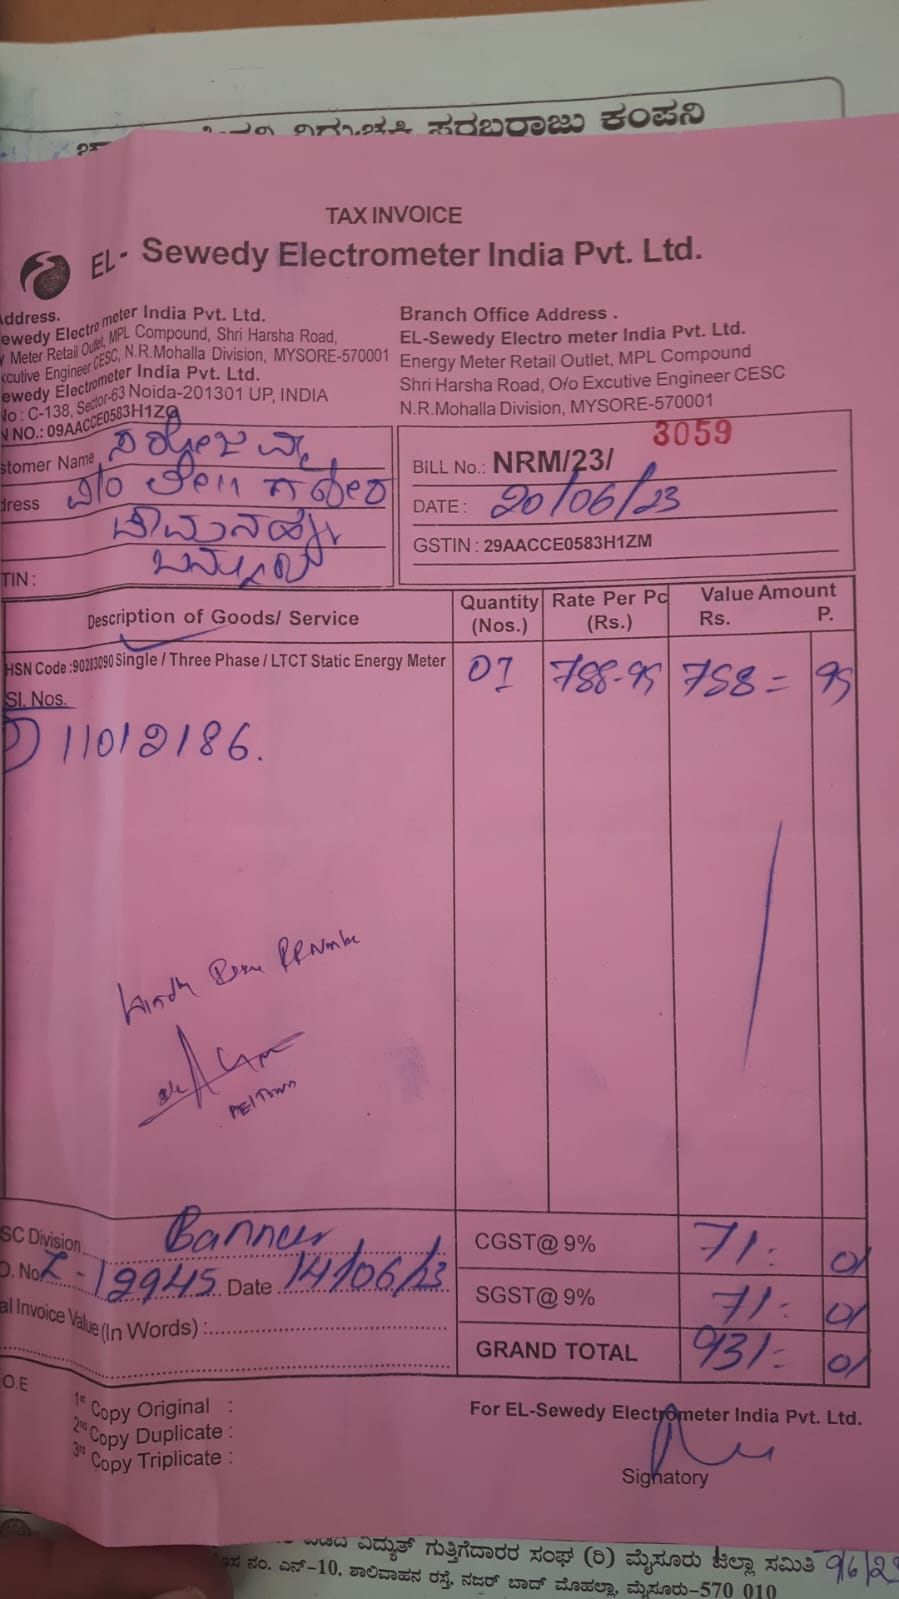 ಸರಬರಾಜು ಕಂಪನಿ
TAX INVOICE
EL- Sewedy Electrometer India Pvt. Ltd.
Address.
ewedy Electro meter India Pvt. Ltd.
Meter Retail Outlet, MPL Compound, Shri Harsha Road,
xcutive Engineer CESC, N.R.Mohalla Division, MYSORE-570001
ewedy Electrometer India Pvt. Ltd.
No : C-138, Sector-63 Noida-201301 UP, INDIA
N NO.: 09AACCE0583H1ZQ
Branch Office Address .
EL-Sewedy Electro meter India Pvt. Ltd.
Energy Meter Retail Outlet, MPL Compound
Shri Harsha Road, O/o Excutive Engineer CESC
N.R.Mohalla Division, MYSORE-570001
stomer Name
dress
TIN :
3059
BILL No.: NRM/23/
DATE : 20/06/23
GSTIN : 29AACCE0583H1ZM
Description of Goods/ Service Quantity (Nos.) Rate Per Pc (Rs.) Value Amount Rs. P.
HSN Code :90283090 Single / Three Phase / LTCT Static Energy Meter 01 788-95 788= 95
Sl. Nos.
1) 11012186.
SC Division Bannur
O. No Z-12945 Date 14/06/23
al Invoice Value (In Words) :
CGST@ 9% 71- 01
SGST@ 9% 71- 01
GRAND TOTAL 931= 01
O.E
1st Copy Original :
2nd Copy Duplicate :
3rd Copy Triplicate :
For EL-Sewedy Electrometer India Pvt. Ltd.
Signatory
ವಿದ್ಯುತ್ ಗುತ್ತಿಗೆದಾರರ ಸಂಘ (ರಿ) ಮೈಸೂರು ಜಿಲ್ಲಾ ಸಮಿತಿ
ನಂ. ಎನ್-10, ಶಾಲಿವಾಹನ ರಸ್ತೆ, ನಜರ್ ಬಾದ್ ಮೊಹಲ್ಲಾ, ಮೈಸೂರು-570 010